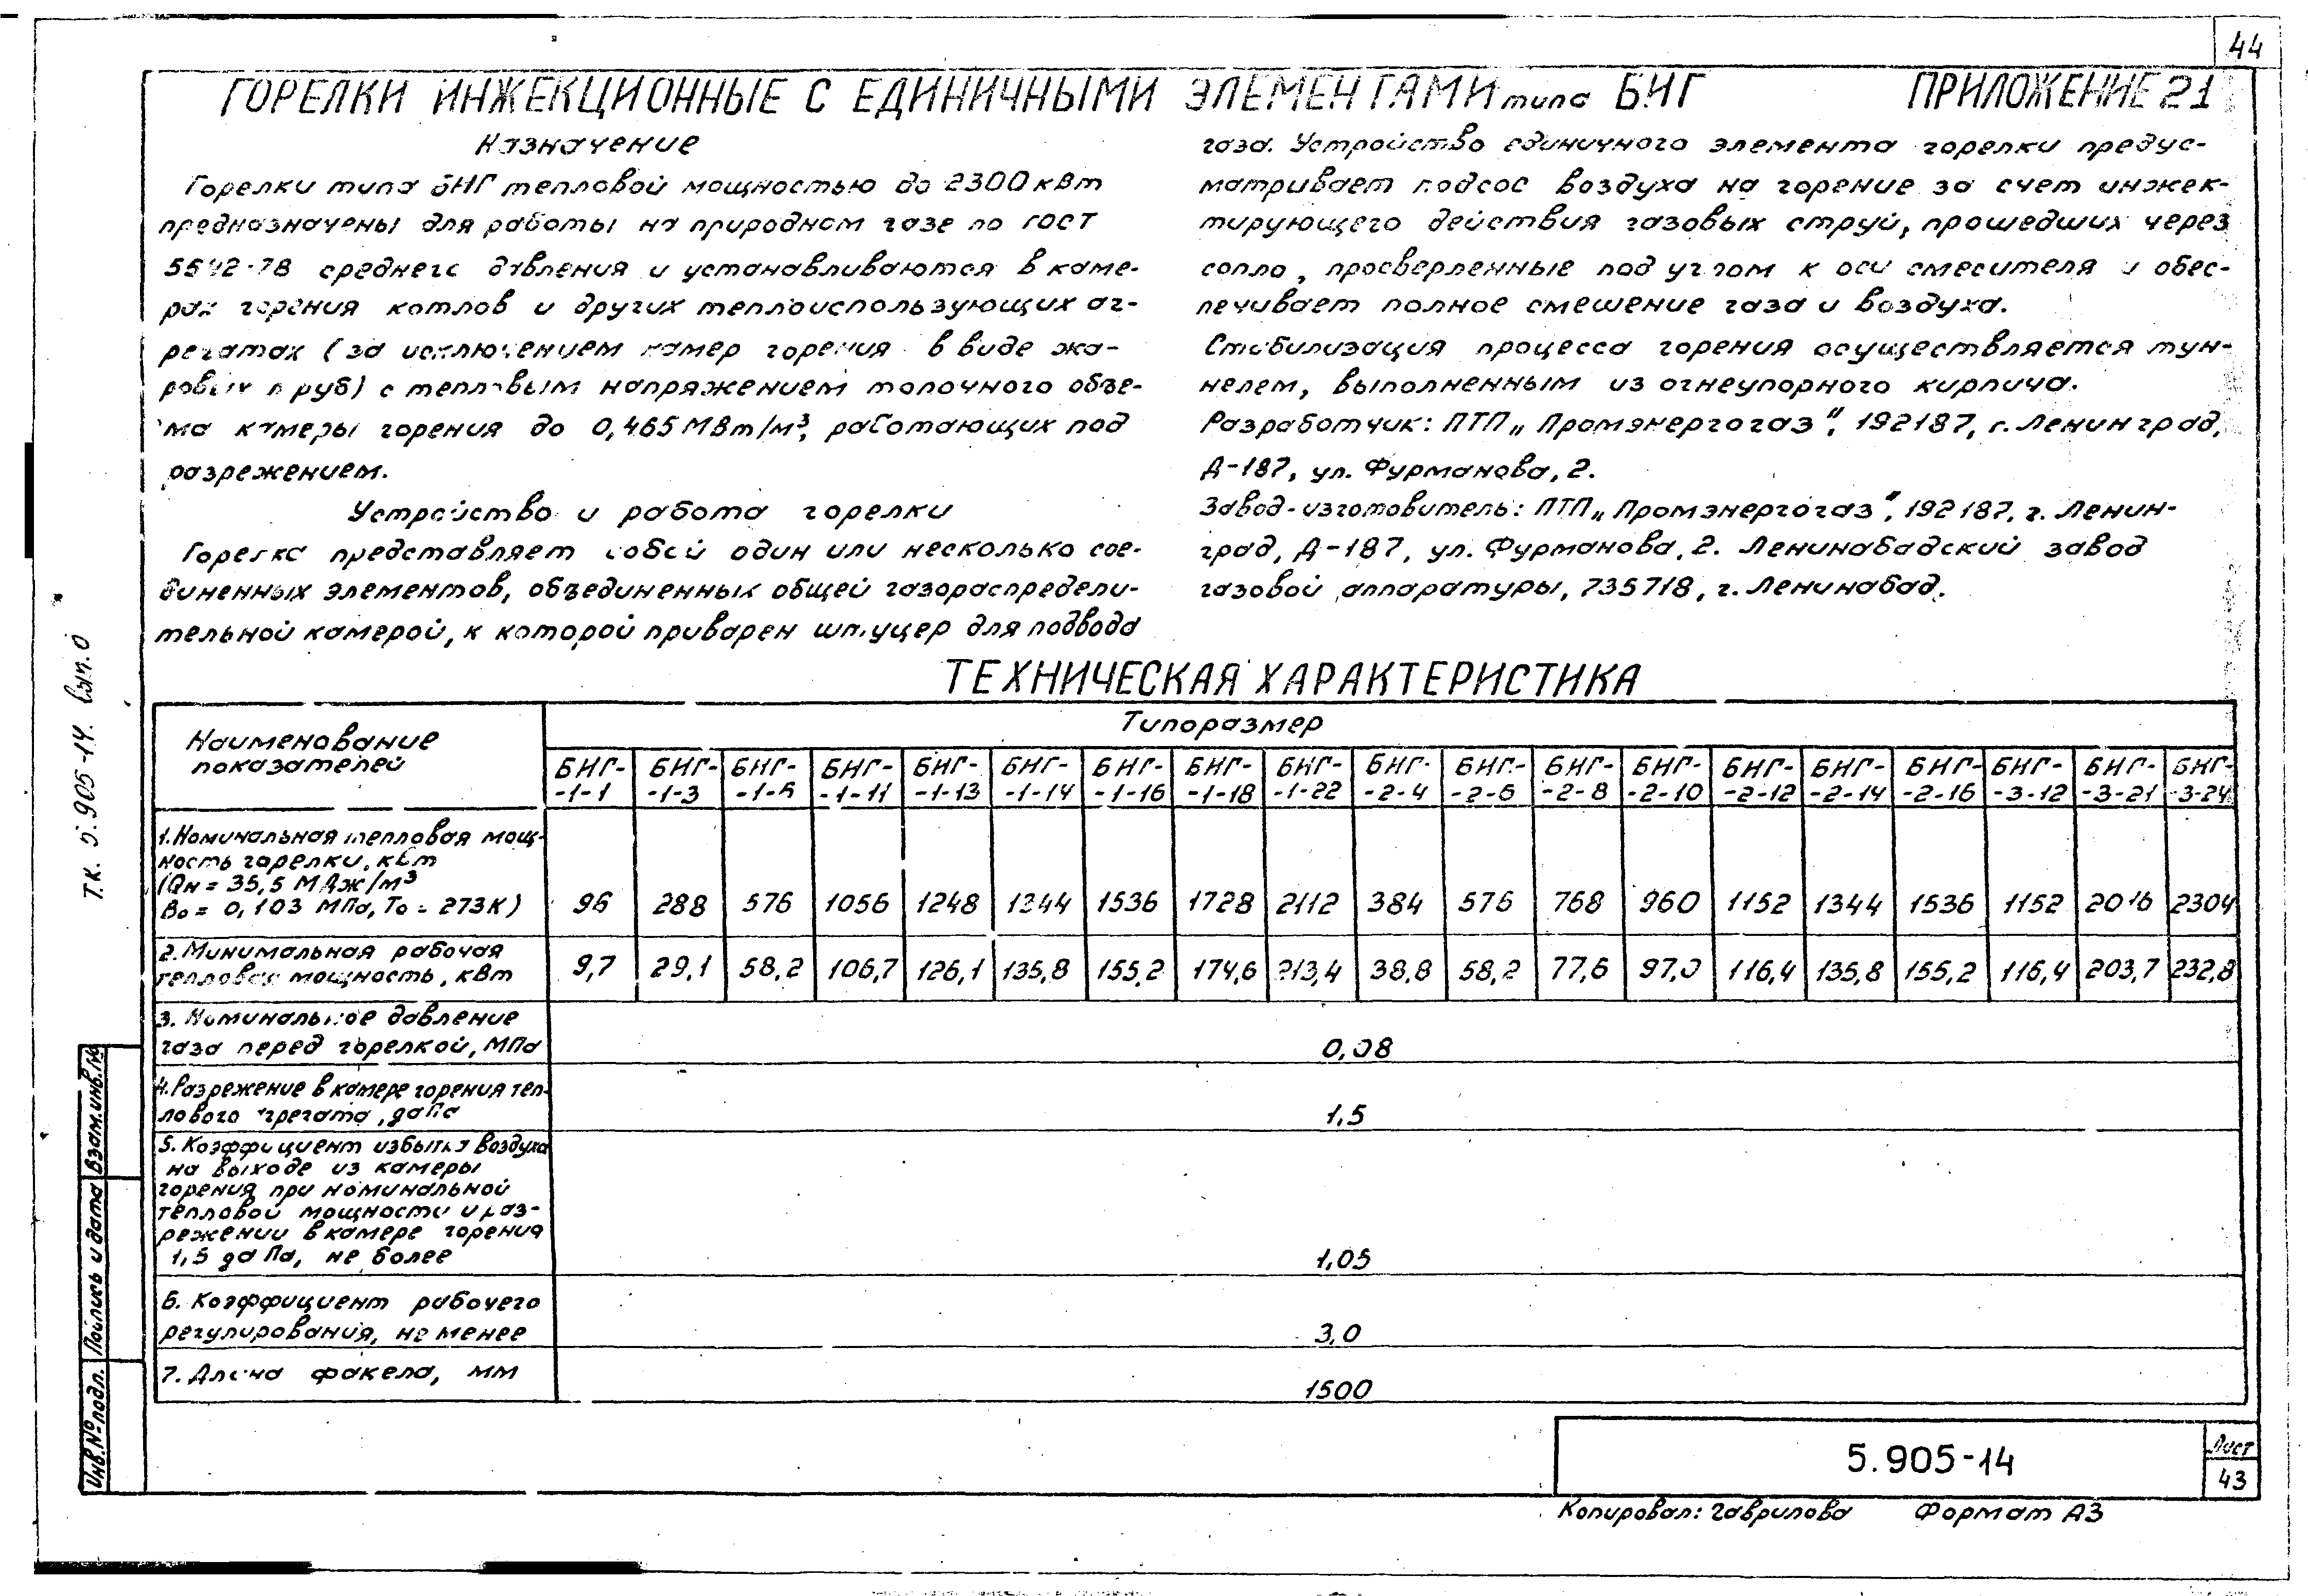 44
ГОРЕЛКИ ИНЖЕКЦИОННЫЕ С ЕДИНИЧНЫМИ ЭЛЕМЕНТАМИ типа БИГ ПРИЛОЖЕНИЕ 21
Назначение
Горелки типа БИГ тепловой мощностью до 2300 кВт
предназначены для работы на природном газе по ГОСТ
5542-78 среднего давления и устанавливаются в каме-
рах горения котлов и других теплоиспользующих аг-
регатах (за исключением камер горения в виде жа-
ровых труб) с тепловым напряжением топочного объе-
ма камеры горения до 0,465 МВт/м³, работающих под
разрежением.
Устройство и работа горелки
Горелка представляет собой один или несколько сое-
диненных элементов, объединенных общей газораспредели-
тельной камерой, к которой приварен штуцер для подвода
газа. Устройство единичного элемента горелки предус-
матривает подсос воздуха на горение за счет инжек-
тирующего действия газовых струй, прошедших через
сопло, просверленные под углом к оси смесителя и обес-
печивает полное смешение газа и воздуха.
Стабилизация процесса горения осуществляется тун-
нелем, выполненным из огнеупорного кирпича.
Разработчик: ПТП „Промэнергогаз", 192187, г. Ленинград,
Д-187, ул. Фурманова, 2.
Завод-изготовитель: ПТП „Промэнергогаз", 192187, г. Ленин-
град, Д-187, ул. Фурманова, 2. Ленинабадский завод
газовой аппаратуры, 735718, г. Ленинабад.
ТЕХНИЧЕСКАЯ ХАРАКТЕРИСТИКА
Наименование
показателей
Типоразмер
БИГ- БИГ- БИГ- БИГ- БИГ- БИГ- БИГ- БИГ- БИГ- БИГ- БИГ- БИГ- БИГ- БИГ- БИГ- БИГ- БИГ- БИГ- БИГ-
-1-1 -1-3 -1-6 -1-11 -1-13 -1-14 -1-16 -1-18 -1-22 -2-4 -2-6 -2-8 -2-10 -2-12 -2-14 -2-16 -3-12 -3-21 -3-24
1. Номинальная тепловая мощ-
ность горелки, кВт
(Qн = 35,5 МДж/м³
В₀ = 0,103 МПа, Т₀ = 273К) 96 288 576 1056 1248 1344 1536 1728 2112 384 576 768 960 1152 1344 1536 1152 2016 2304
2. Минимальная рабочая
тепловая мощность, кВт 9,7 29,1 58,2 106,7 126,1 135,8 155,2 174,6 213,4 38,8 58,2 77,6 97,0 116,4 135,8 155,2 116,4 203,7 232,8
3. Номинальное давление
газа перед горелкой, МПа 0,08
4. Разрежение в камере горения теп-
лового агрегата, даПа 1,5
5. Коэффициент избытка воздуха
на выходе из камеры
горения при номинальной
тепловой мощности и раз-
режении в камере горения
1,5 даПа, не более 1,05
6. Коэффициент рабочего
регулирования, не менее 3,0
7. Длина факела, мм 1500
5.905-14
Лист
43
Копировал: Гаврилова Формат А3
Т.К. 5.905-14. Вып. 0
Взам. инв. №
Подпись и дата
Инв. № подл.